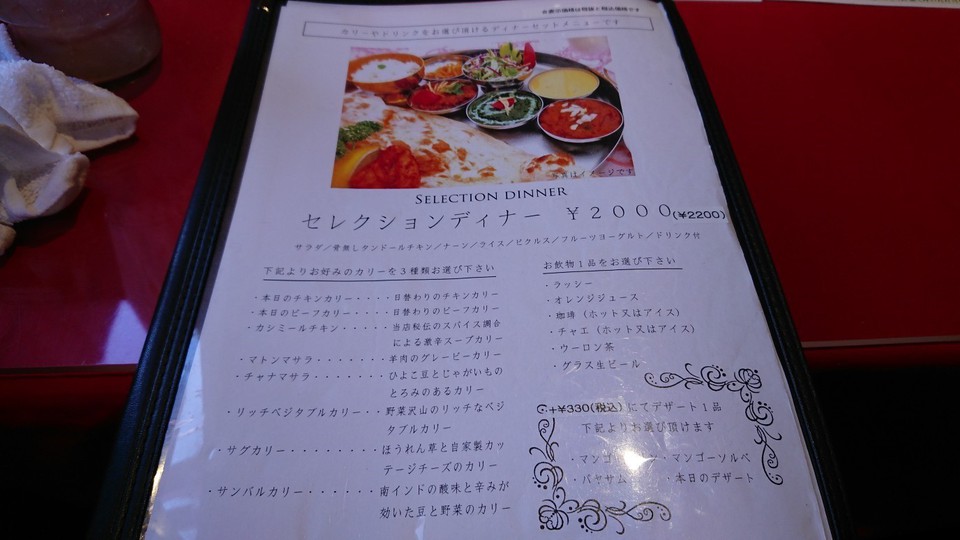 ※表示価格は税抜と税込価格です
カリーやドリンクをお選び頂けるディナーセットメニューです
写真はイメージです
SELECTION DINNER
セレクションディナー ￥２０００(¥2200)
サラダ／骨無しタンドールチキン／ナーン／ライス／ピクルス／フルーツヨーグルト／ドリンク付
下記よりお好みのカリーを３種類お選び下さい
・本日のチキンカリー・・・・日替わりのチキンカリー
・本日のビーフカリー・・・・日替わりのビーフカリー
・カシミールチキン・・・・・当店秘伝のスパイス調合
による激辛スープカリー
・マトンマサラ・・・・・・・羊肉のグレービーカリー
・チャナマサラ・・・・・・・ひよこ豆とじゃがいもの
とろみのあるカリー
・リッチベジタブルカリー・・野菜沢山のリッチなベジ
タブルカリー
・サグカリー・・・・・・・・ほうれん草と自家製カッ
テージチーズのカリー
・サンバルカリー・・・・・・南インドの酸味と辛みが
効いた豆と野菜のカリー
お飲物１品をお選び下さい
・ラッシー
・オレンジジュース
・珈琲（ホット又はアイス）
・チャエ（ホット又はアイス）
・ウーロン茶
・グラス生ビール
+¥330(税込)にてデザート１品
下記よりお選び頂けます
・マンゴ ・マンゴーソルベ
・パヤサム ・本日のデザート